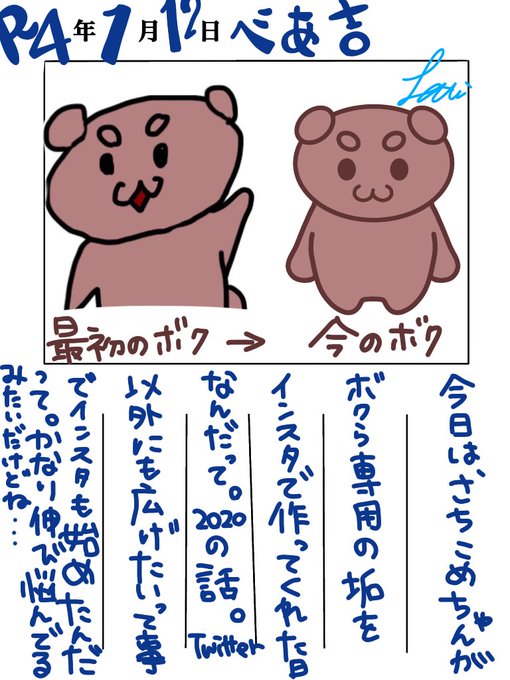 R4年1月12日 べあ吉
最初のボク → 今のボク
今日は、さちこめちゃんが
ボクら専用の垢を
インスタで作ってくれた日
なんだって。2020の話。Twitter
以外にも広げたいって事
でインスタも始めたんだ
って。かなり伸び悩んでる
みたいだけどね…